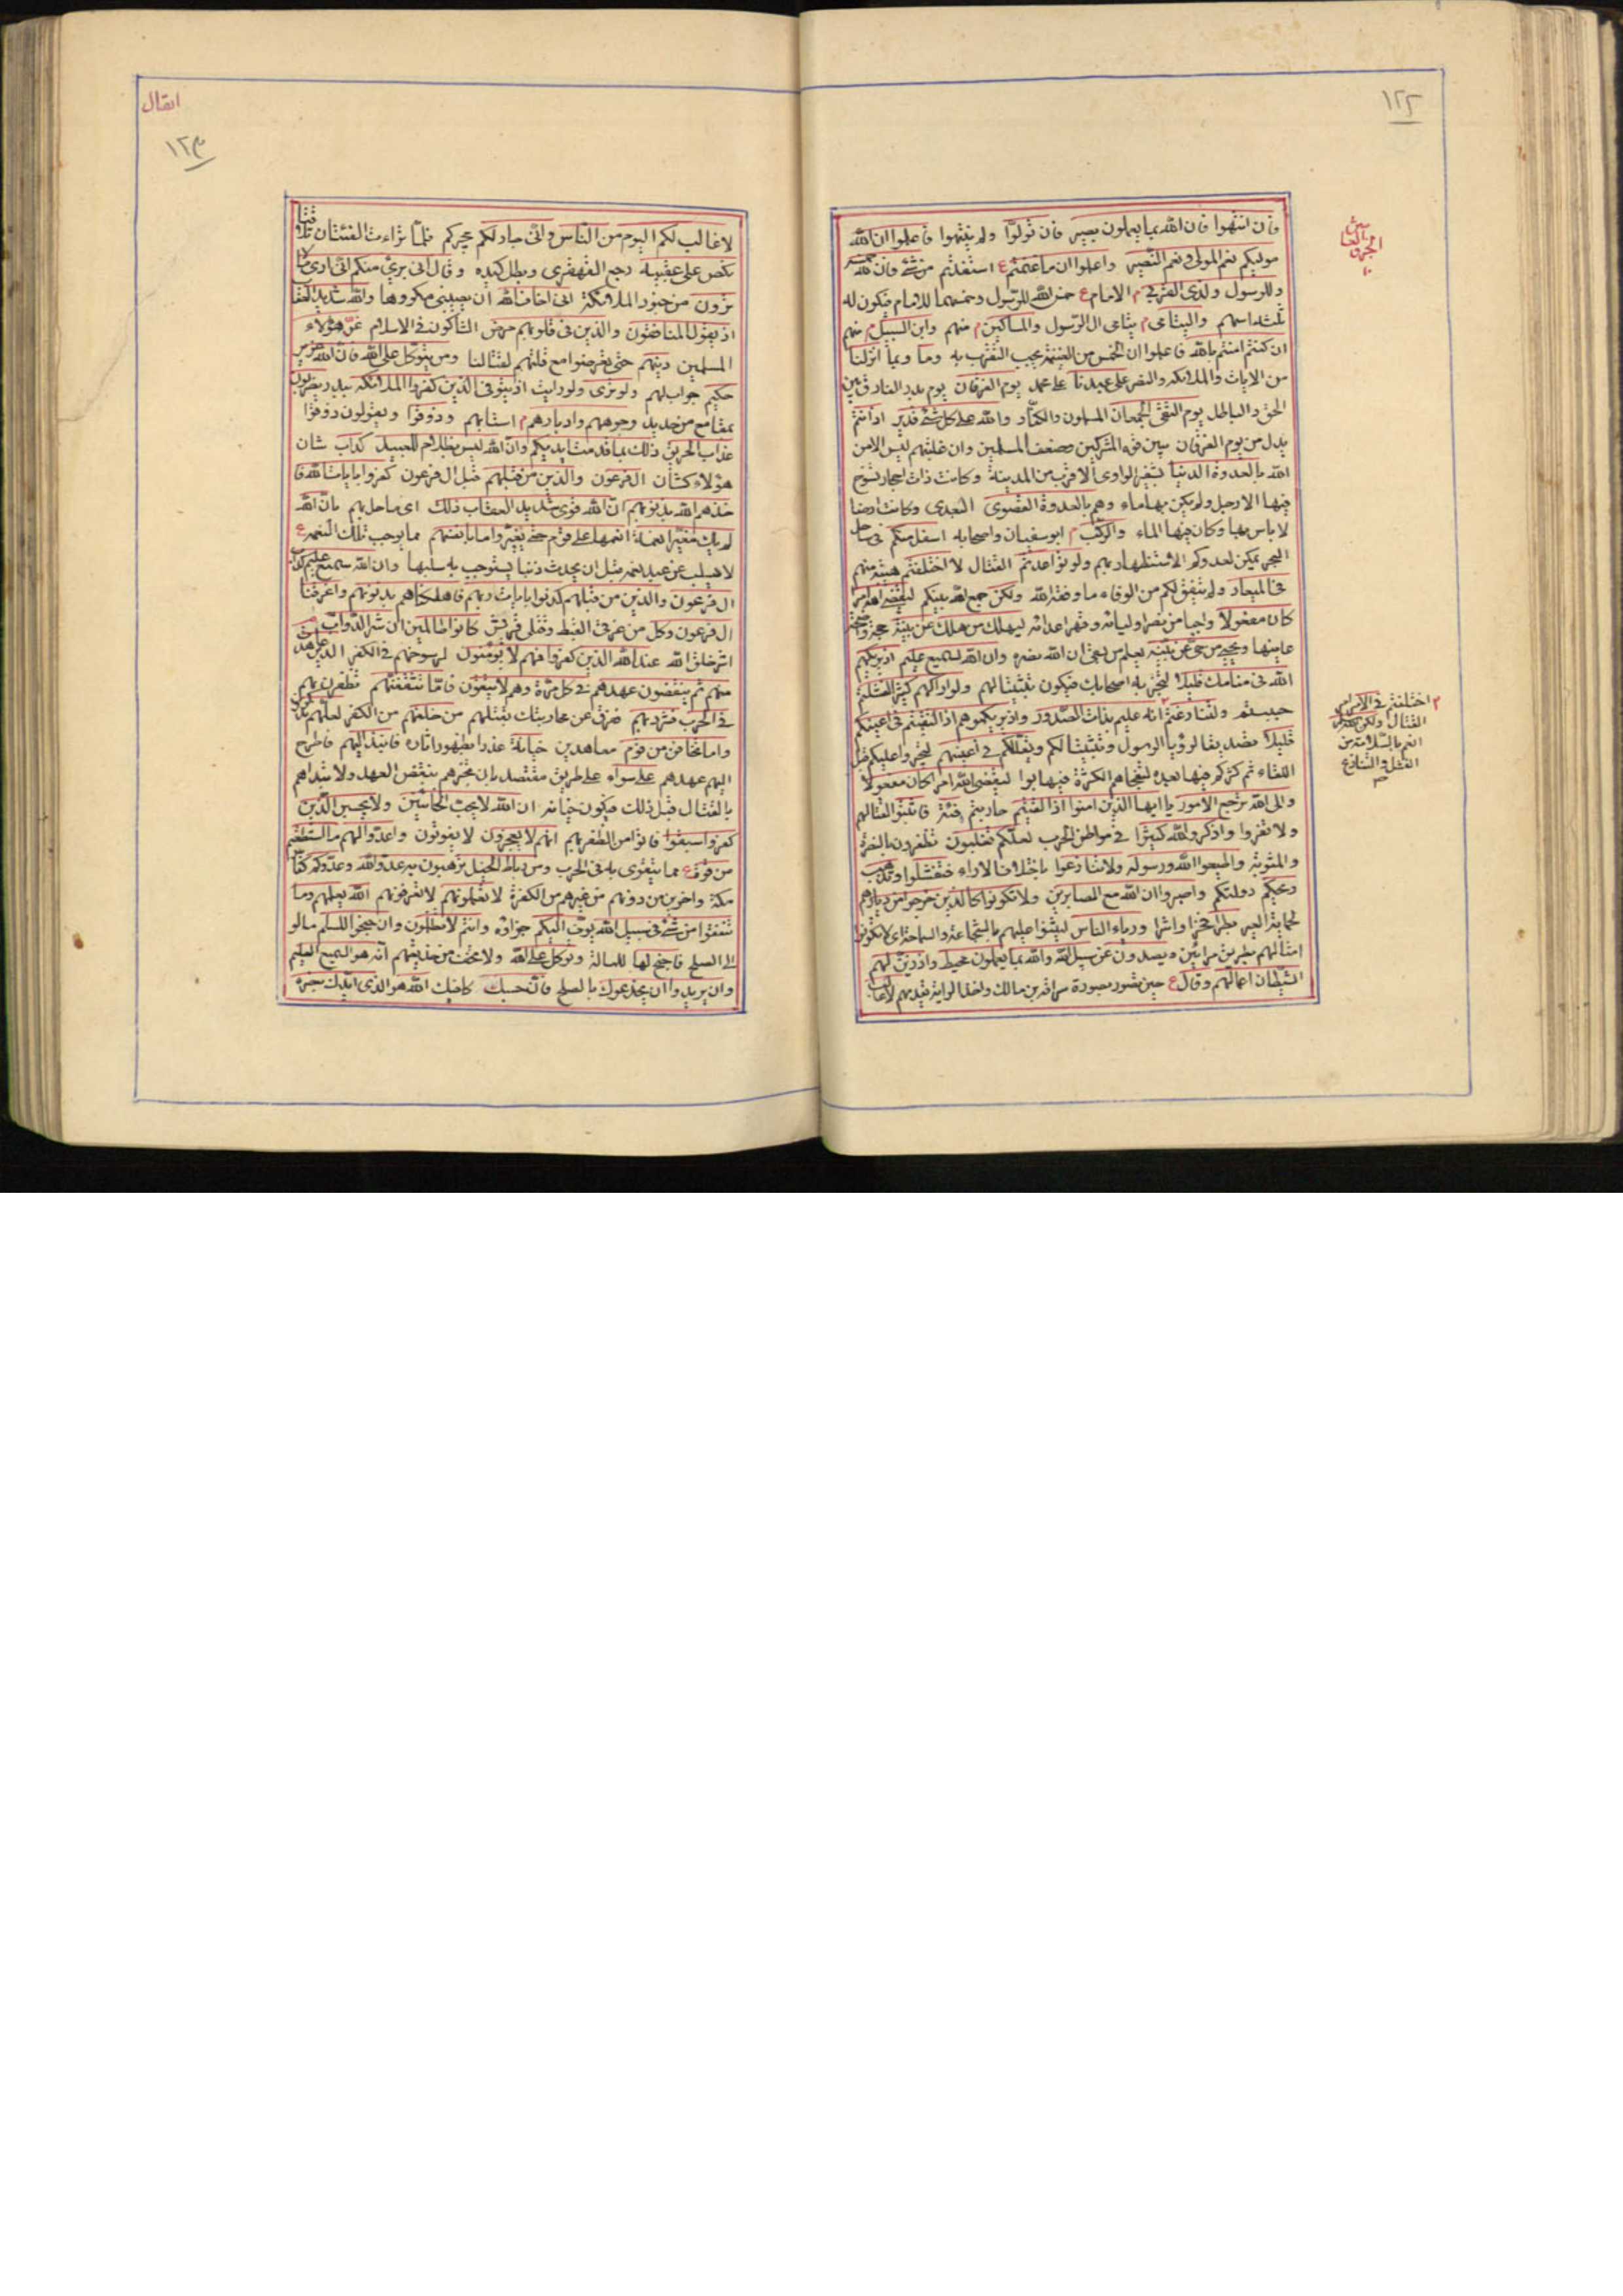 ١٢٢
الجزؤ العا
١٠
فان انتهوا فان الله بما يعملون بصير فان تولوا ولم ينتهوا فاعلموا ان الله
موليكم نعم المولى ونعم النصير واعلموا ان ما غنمتم ع استفدتم من شئ فان لله خمسه
وللرسول ولذى القربى م الامام ع خمس الله للرسول وخمسهما للامام فيكون له
ثلثة اسهم واليتامى م يتامى ال الرسول والمساكين م منهم وابن السبيل م منهم
ان كنتم امنتم بالله فاعلموا ان الخمس من الغنيمة يجب التقرب به وما وبما انزلنا
من الايات والملائكه والنصر على عبدنا على محمد يوم الفرقان يوم بدر الفارق بين
الحق والباطل يوم التقى الجمعان المسلمون والكفار والله على كل شئ قدير اذ انتم
بدل من يوم الفرقان يبين قوة المشركين وضعف المسلمين وان غلبتهم ليس الا من
الله بالعدوة الدنيا بشفير الوادى الاقرب من المدينة وكانت ذات احجار تسوخ
فيها الارجل ولم يكن بها ماء وهم بالعدوة القصوى البعدى وكانت ارضا
لا باس بها وكان فيها الماء والركب م ابو سفيان واصحابه اسفل منكم فى ساحل
البحر تمكين لعدوكم الاستظهار بهم ولو تواعدتم القتال لاختلفتم هيبة منهم
فى الميعاد ولم يتفق لكم من الوفاء ما وفقه الله ولكن جمع الله بينكم ليقضى الله امرا
كان مفعولا واجبا من نصر اوليائه وقهر اعدائه ليهلك من هلك عن بينة حجة واضحة
عاينها ويحيى من حى عن بينة يعلم من بقى ان الله نصره وان الله لسميع عليم اذ يريكهم
الله فى منامك قليلا لتخبر به اصحابك فيكون تثبيتا لهم ولو اراكهم كثيرا لفشلتم
جبنتم ولتنازعتم ٢ انه عليم بذات الصدور واذ يريكموهم اذ التقيتم فى اعينكم
قليلا تصديقا لرؤيا الرسول وتثبيتا لكم ويقللكم فى اعينهم ليجترءوا عليكم قبل
اللقاء ثم كثركم فيها بعده لتفجأهم الكثرة فيهابوا ليقضى الله امرا كان مفعولا
والى الله ترجع الامور يا ايها الذين امنوا اذا لقيتم حاربتم فئة فاثبتوا لقتالهم
ولا تفروا واذكروا الله كثيرا فى مواطن الحرب لعلكم تفلحون تظفرون بالنصرة
والمثوبة واطيعوا الله ورسوله ولا تنازعوا باختلاف الاراء فتفشلوا وتذهب
ريحكم دولتكم واصبروا ان الله مع الصابرين ولا تكونوا كالذين خرجوا من ديارهم
لحماية العير بطرا فخرا واشرا ورئاء الناس ليثنوا عليهم بالشجاعة والسماحة اى لا تكونوا
امثالهم بطرين مرائين ويصدون عن سبيل الله والله بما يعملون محيط واذ زين لهم
الشيطان اعمالهم وقال ع حين تصور بصورة سراقة بن مالك واخذ الراية فيديهم لا غالب
٢ اختلفتم فى الامر امر
القتال ولكن الله سلم
انعم بالسلامة من
الفشل والتنازع
انفال
١٢٣
لا غالب لكم اليوم من الناس وانى جار لكم مجيركم فلما تراءت الفئتان تلاقتا
نكص على عقبيه رجع القهقرى وبطل كيده وقال انى برئ منكم انى ارى ما لا
ترون من جنود الملائكة انى اخاف الله ان يصيبنى مكروها والله شديد العقاب
اذ يقول المنافقون والذين فى قلوبهم مرض الشاكون فى الاسلام غر هؤلاء
المسلمين دينهم حتى تعرضوا مع قلتهم لقتالنا ومن يتوكل على الله فان الله عزيز
حكيم جواب لهم ولو ترى ولو رايت اذ يتوفى الذين كفروا الملائكة ببدر يضربون
بمقامع من حديد وجوههم وادبارهم م استاههم وذوقوا ويقولون ذوقوا
عذاب الحريق ذلك بما قدمت ايديكم وان الله ليس بظلام للعبيد كداب شان
هؤلاء كشأن ال فرعون والذين من قبلهم قبل ال فرعون كفروا بايات الله فا
خذهم الله بذنوبهم ان الله قوى شديد العقاب ذلك اى ما حل بهم بان الله
لم يك مغيرا نعمة انعمها على قوم حتى يغيروا ما بانفسهم مما يوجب تلك النعمه ع
لا يسلب عن عبد نعمه قبل ان يحدث ذنبا يستوجب به سلبها وان الله سميع عليم كداب
ال فرعون والذين من قبلهم كذبوا بايات ربهم فاهلكناهم بذنوبهم واغرقنا
ال فرعون وكل من غرقى القبط وقتلى قريش كانوا ظالمين ان شر الدواب
اشر خلق الله عند الله الذين كفروا فهم لا يؤمنون لرسوخهم فى الكفر الذين عاهدت
منهم ثم ينقضون عهدهم فى كل مرة وهم لا يتقون فاما تثقفنهم تظفرن بهم
فى الحرب فشرد بهم فرق عن محاربتك بقتلهم من خلفهم من الكفر لعلهم يذكرون
واما تخافن من قوم معاهدين خيانة غدرا بظهور اثاره فانبذ اليهم فاطرح
اليهم عهدهم على سواء على طريق مقتصد بان تخبرهم بنقض العهد ولا تبداهم
بالقتال قبل ذلك فيكون خيانة ان الله لا يحب الخائنين ولا يحسبن الذين
كفروا سبقوا فاتوا من الظفر بهم انهم لا يعجزون لا يفوتون واعدوا لهم ما استطعتم
من قوة ع مما يتقوى به فى الحرب ومن رباط الخيل ترهبون به عدو الله وعدوكم كفار
مكة واخرين من دونهم من غيرهم من الكفرة لا تعلمونهم لا تعرفونهم الله يعلمهم وما
تنفقوا من شئ فى سبيل الله يوف اليكم جزاؤه وانتم لا تظلمون وان جنحوا للسلم مالو
الى الصلح فاجنح لها للمسالمة وتوكل على الله ولا تخف من خديعتهم انه هو السميع العليم
وان يريدوا ان يخدعوك بالصلح فان حسبك كافيك الله هو الذى ايدك بنصره